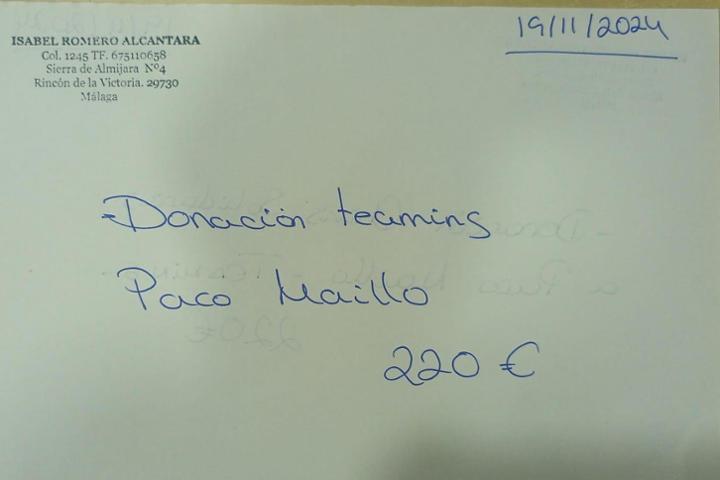 ISABEL ROMERO ALCANTARA
Col. 1245 TF. 675110658
Sierra de Almijara Nº4
Rincón de la Victoria. 29730
Málaga
19/11/2024
-Donación teaming
Paco Maillo
220 €